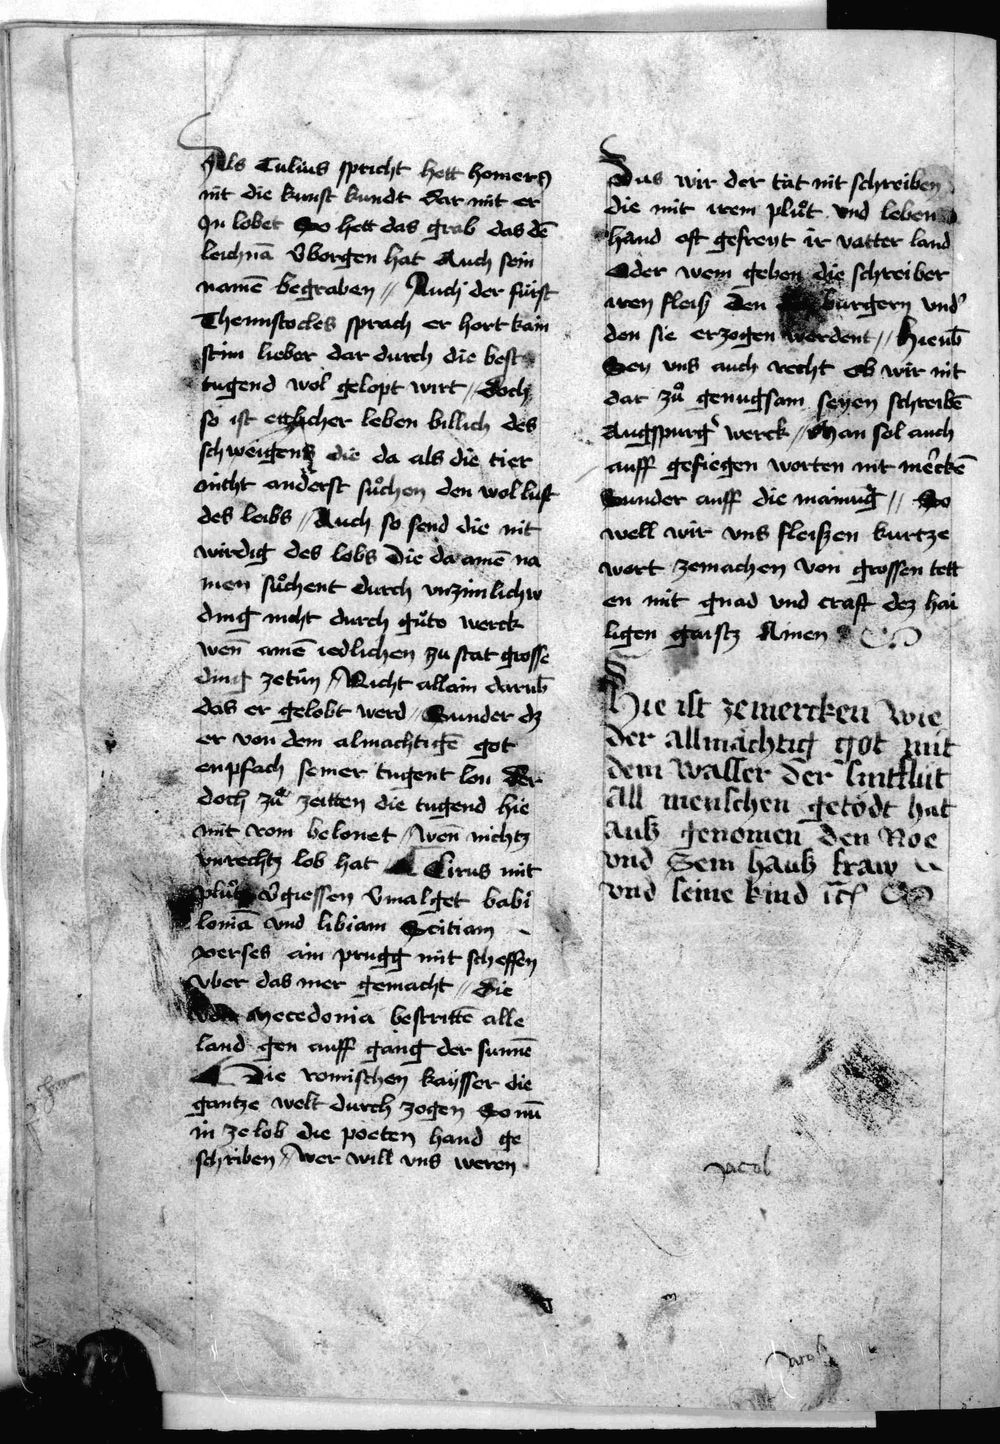 Als Tulius spricht hett homerꝰ
nit die kunst kundt dar mit er
In lobet So hett das grab das dē
leichnā v̄borgen hat Auch sein
namē begraben // Auch der fürst
Themistocles sprach er hort kain
stim lieber dar durch die best
tugend wol gelopt wirt // Doch
so ist etzlicher leben billich des
schweigens die da als die tier
nicht anderst sůchen den wollust
des leibs // Auch so send die nit
wirdig des lobs Die da ainē na
men sůchent durch vnzimlichw
ding nicht durch gůto werck
wen̄ ainē iedlichen zu stat grosse
ding zetůn // Nicht allain darub̄
das er gelobt werd // Sunder dz
er von dem almachtigē got
enpfach seiner tugent lon Der
doch zů zeitten die tugend hie
mit rom belonet // Wen̄ nichtz
vnrechtz lob hat Cirus mit
plůt v̄giessen v̄malget babi
loniā vnd libiam Scitiam
xerses ain prugg mit scheffen
vber das mer gemacht // Die
von Macedonia bestrittē alle
land gen auff gang der sunnē
Die romischen kaysser die
gantze welt durch zogen So nū
in ze lob die poeten hand ge
schriben // Wer will vns weren
Das wir der tät nit schreiben
die mit irem plůt vnd leben
hand oft gefreyt ir vatter land
Oder wem geben die schreiber
iren fleisz den burgern vnd
den sie erzogen werdent // Hierub̄
Sey vns auch recht ob wir nit
dar zů genugsam seyen schreibē
Augspurger werck // Man sol auch
auff gesiegen worten nit merckē
Sunder auff die mainug // So
well wir vns fleiszen kurtze
wort zemachen von grossen tett
en mit gnad vnd craft dez hai
ligen gaistz Amen
Hie ist zemercken wie
der allmächtig got mit
dem wasser der sintflůt
all menschen getödt hat
ausz genomen den Noe
vnd Sem hausz fraw
vnd seine kind
Jacob